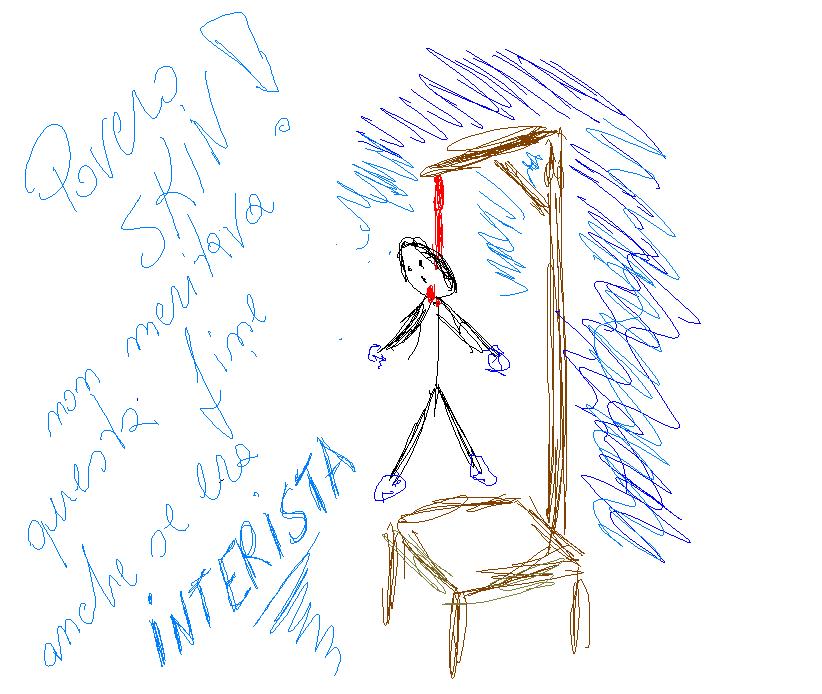 Povero
SKIN!
non meritava
questa fine
anche se era
INTERISTA